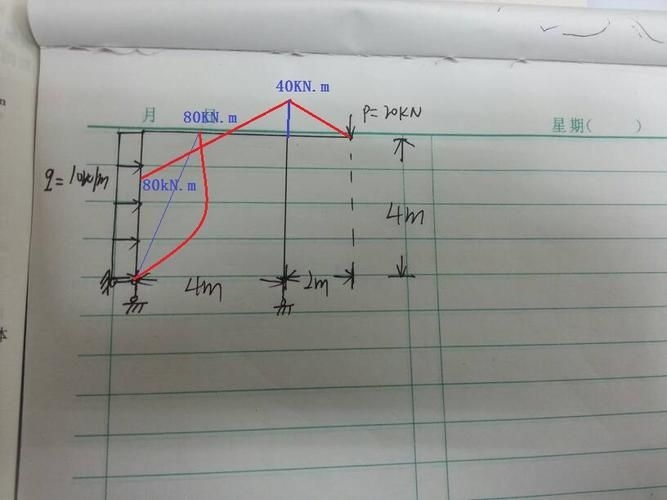 40KN.m
月 日
80KN.m
P=20KN
星期( )
q=10kN/m
80kN.m
4m
4m
2m
本